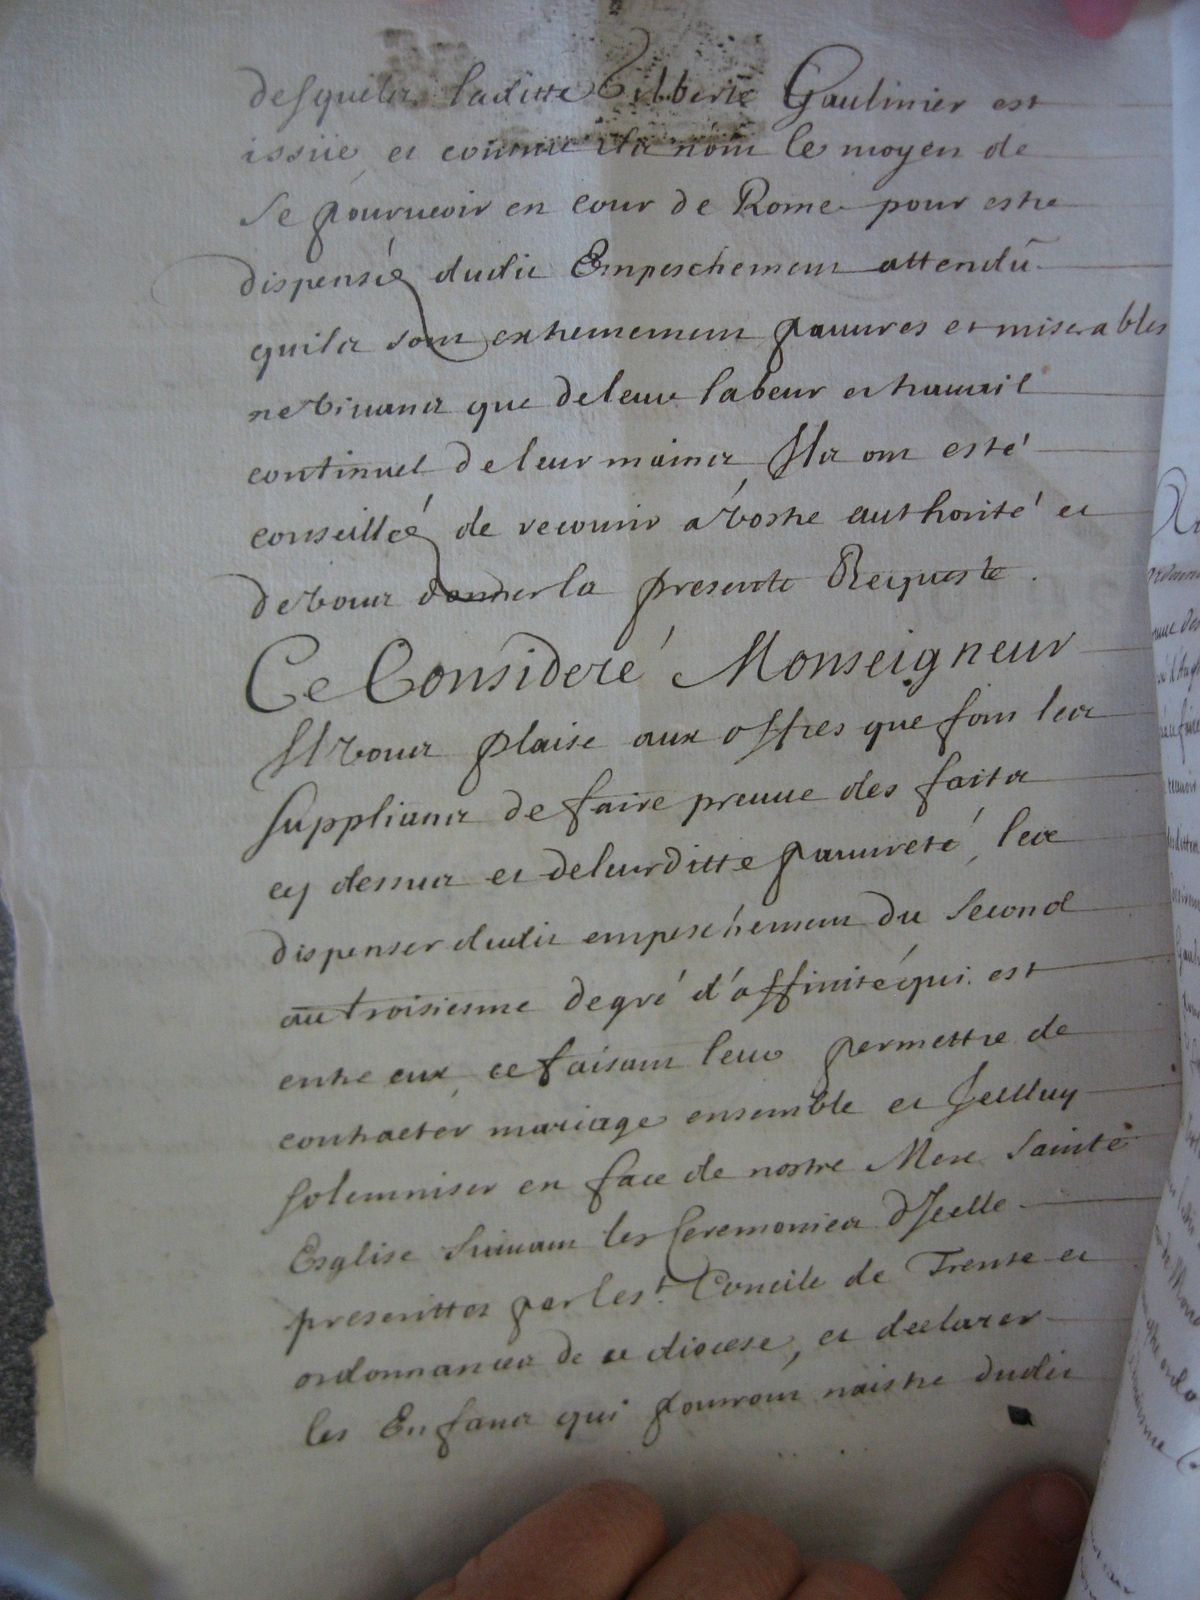 desquels laditte Gilberte Gaulinier est
issüe et comme ils n'ont le moyen de
se pouruoir en cour de Rome pour estre
dispensés dudit Empeschement attendu
quils sont extremement pauures et miserables
ne viuants que de leur labeur et trauail
continuel de leur mains Ils ont esté
conseillés de recourir a vostre authorité et
de vous donner la presente Requeste.
Ce Consideré Monseigneur
Il vous plaise aux offres que font les
suppliants de faire preuue des faits
cy dessus et de leurditte pauureté, les
dispenser dudit empeschement du second
au troisiesme degré d'affinité qui est
entre eux, ce faisant leur permettre de
contracter mariage ensemble et Jcelluy
solemniser en face de nostre Mere Sainte
Esglise suiuant les Ceremonies d'Jcelle
prescrittes par le st. Concile de Trente et
ordonnances de ce diocese, et declarer
les Enfants qui pourront naistre dudit